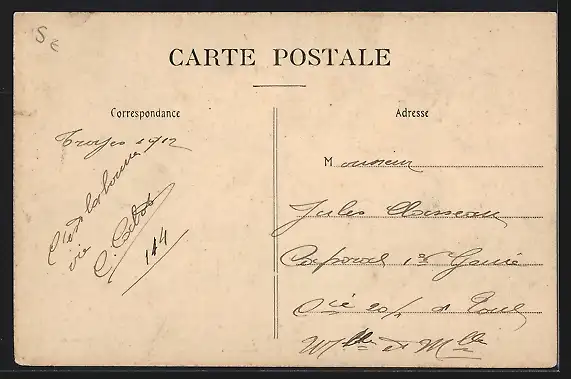 5 E
CARTE POSTALE
Correspondance
Troyes 1912
C'est la bonne
vie
144
Adresse
Monsieur
Jules
Caporal 1er Génie
Cie 20/1 à Toul
M et Mlle